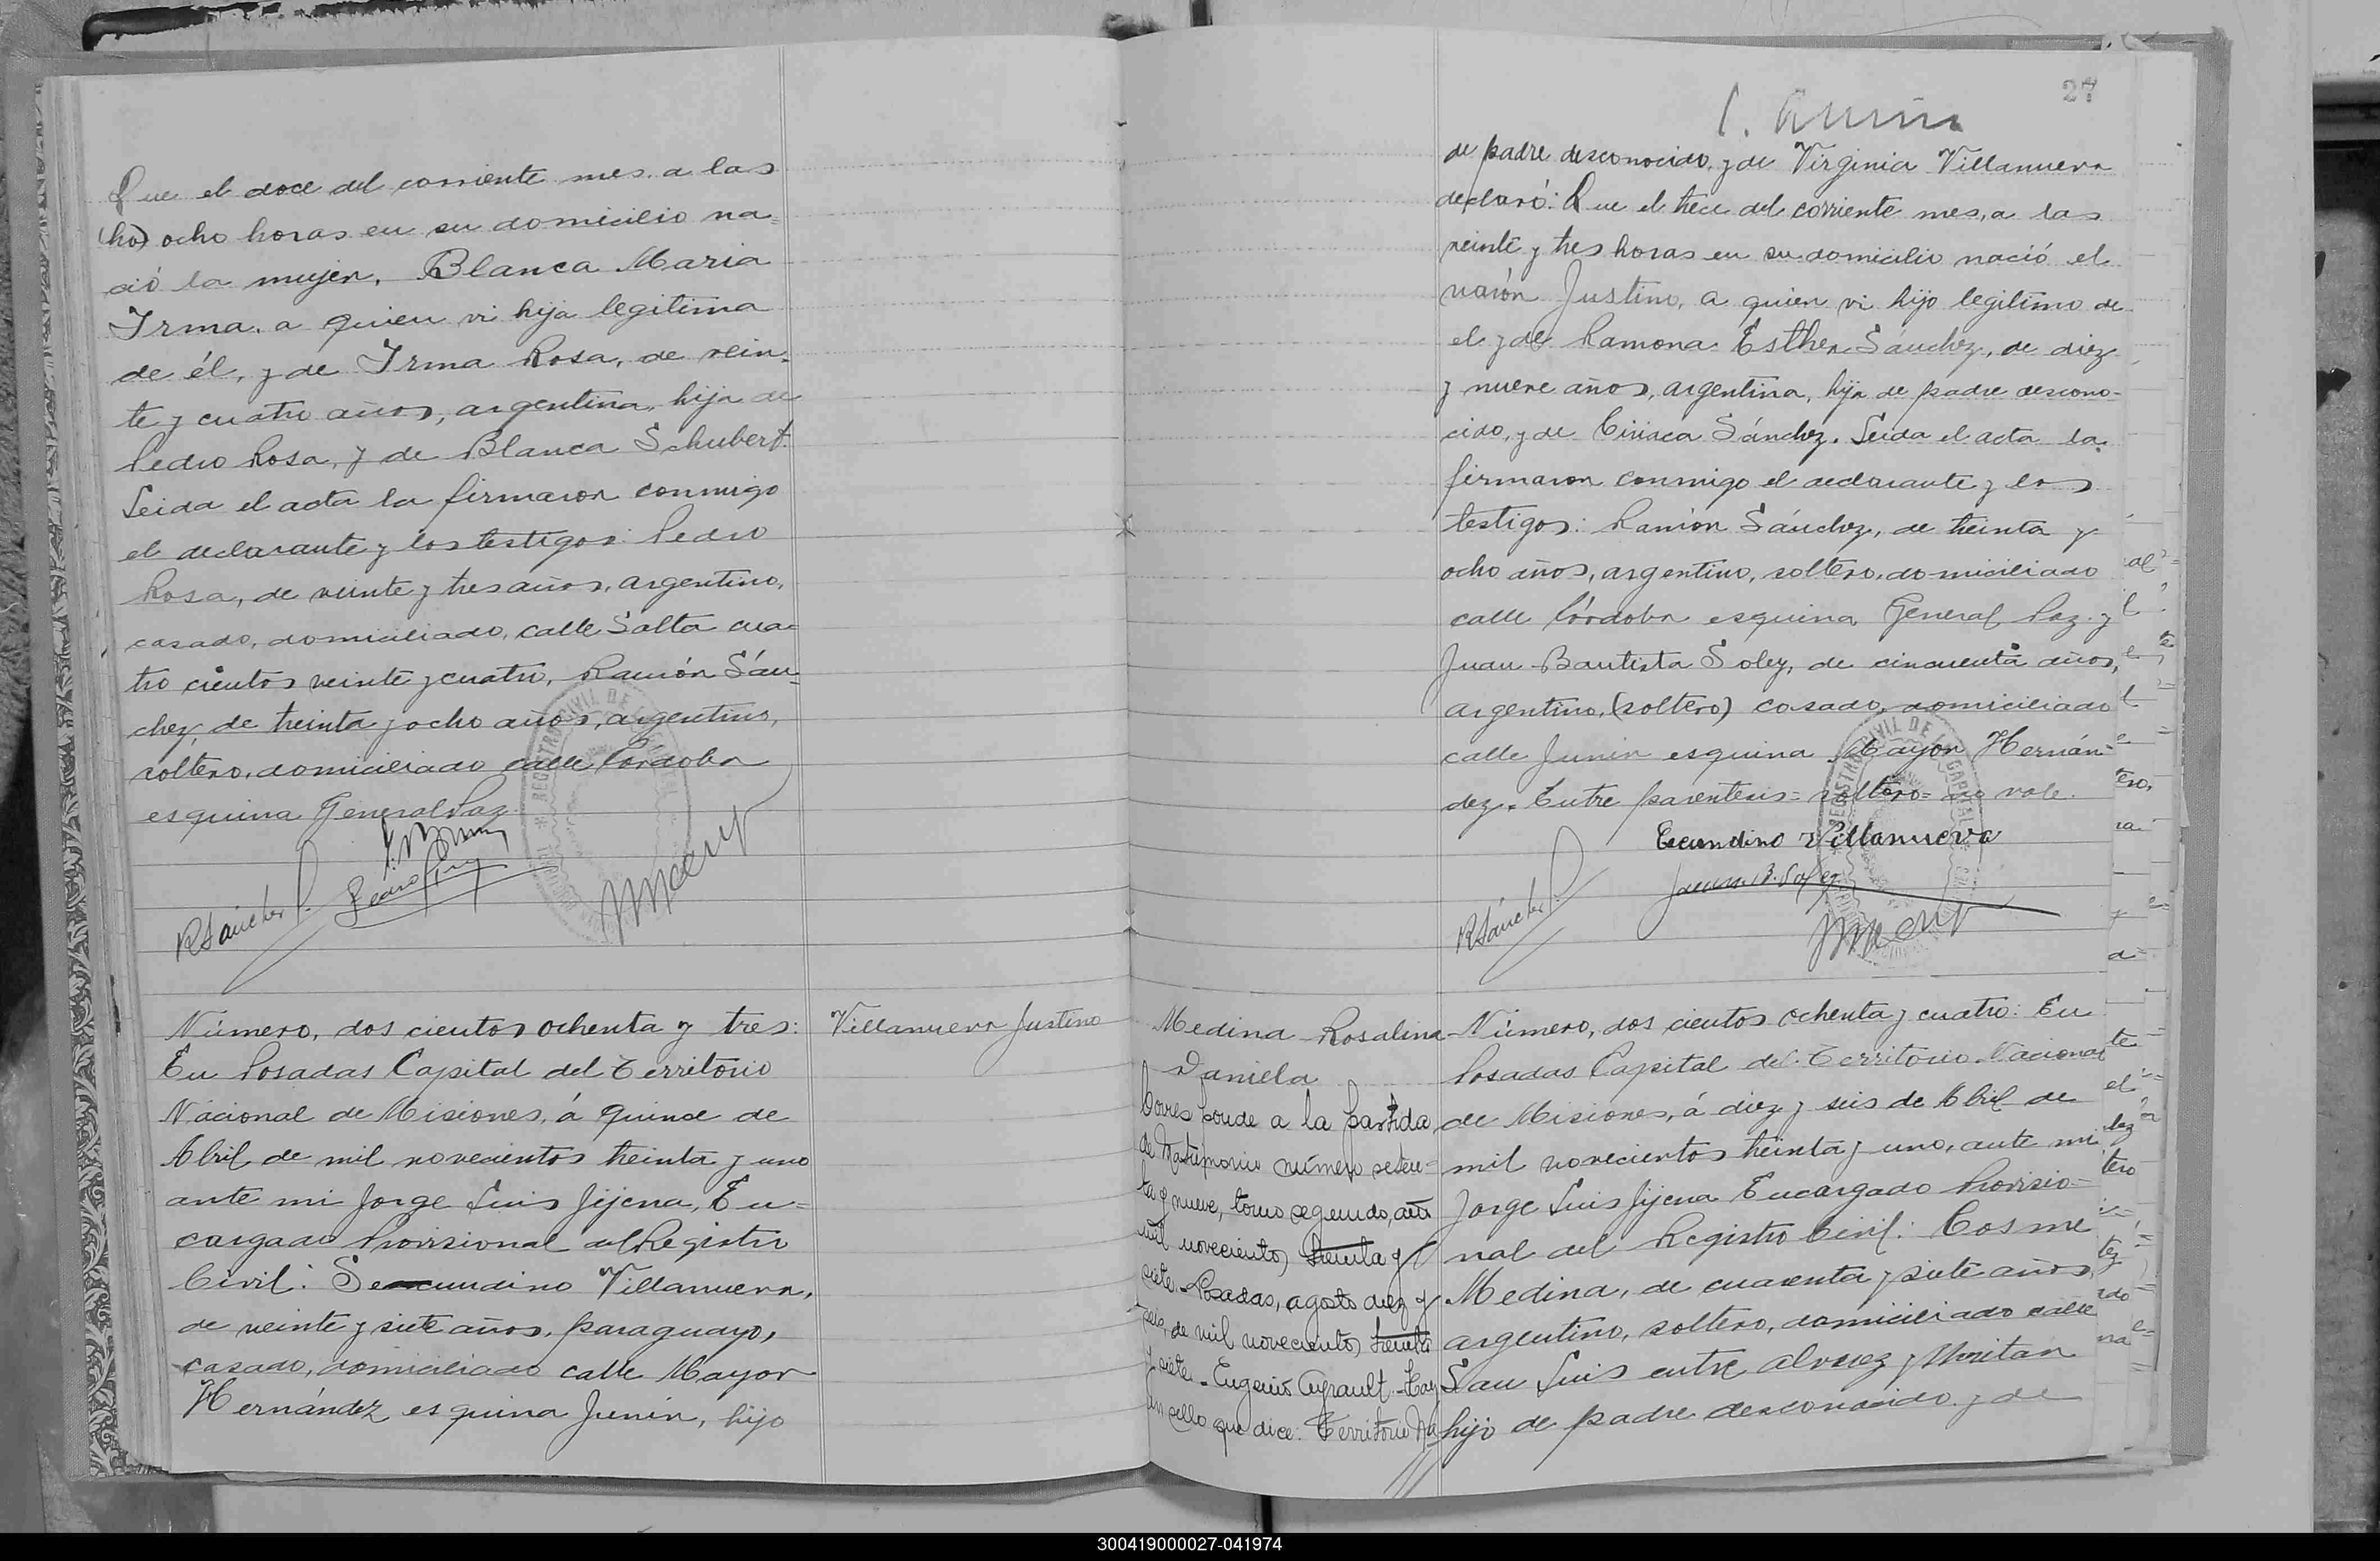 Que el doce del corriente mes. a las
(ho) ocho horas en su domicilio na=
ció la mujer, Blanca Maria
Irma. a quien vi hija legitima
de él, y de Irma Rosa, de vein=
te y cuatro años, argentina, hija de
Pedro Rosa, y de Blanca Schubert.
Leida el acta la firmaron conmigo
el declarante y los testigos: Pedro
Rosa, de veinte y tres años, argentino,
casado, domiciliado, calle Salta cua=
tro cientos veinte y cuatro, Ramón Sán=
chez, de treinta y ocho años, argentino,
soltero, domiciliado calle Córdoba
esquina General Paz.
RSánchez
Número, dos cientos ochenta y tres:
En Posadas Capital del Territorio
Nacional de Misiones, á quince de
Abril de mil novecientos treinta y uno
ante mi Jorge Luis Jijena, En=
cargado Provisional del Registro
Civil: Secundino Villanueva,
de veinte y siete años, paraguayo,
casado, domiciliado calle Mayor
Hernández esquina Junin, hijo
Villanueva Justino
27
de padre desconocido, y de Virginia Villanueva
declaró: Que el trece del corriente mes, a las
veinte y tres horas en su domicilio nació el
varón Justino, a quien vi hijo legitimo de
el y de Ramona Esther Sánchez, de diez
y nueve años, argentina, hija de padre descono-
cido, y de Ciriaca Sánchez. Leida el acta la
firmaron conmigo el declarante y los
testigos: Ramón Sánchez, de treinta y
ocho años, argentino, soltero, domiciliado
calle Córdoba esquina General Paz. y
Juan Bautista Soley, de cincuenta años,
argentino, (soltero) casado, domiciliado
calle Junin esquina Mayor Hernán=
dez. Entre parentesis = soltero = no vale.
Secundino Villanueva
RSánchez
Medina Rosalina
Daniela
Corresponde a la partida
de Matrimonio número seten=
ta y nueve, tomo segundo, año
mil novecientos treinta y
siete. Posadas, agosto diez y
seis, de mil novecientos treinta
y siete. Eugenio Ayrault. Hay
un sello que dice: Territorio Na
Número, dos cientos ochenta y cuatro: En
Posadas Capital del Territorio Nacional
de Misiones, á diez y seis de Abril de
mil novecientos treinta y uno, ante mi
Jorge Luis Jijena Encargado Provisio-
nal del Registro Civil: Cosme
Medina, de cuarenta y siete años,
argentino, soltero, domiciliado calle
San Luis entre Alvarez y
hijo de padre desconocido y de
300419000027-041974